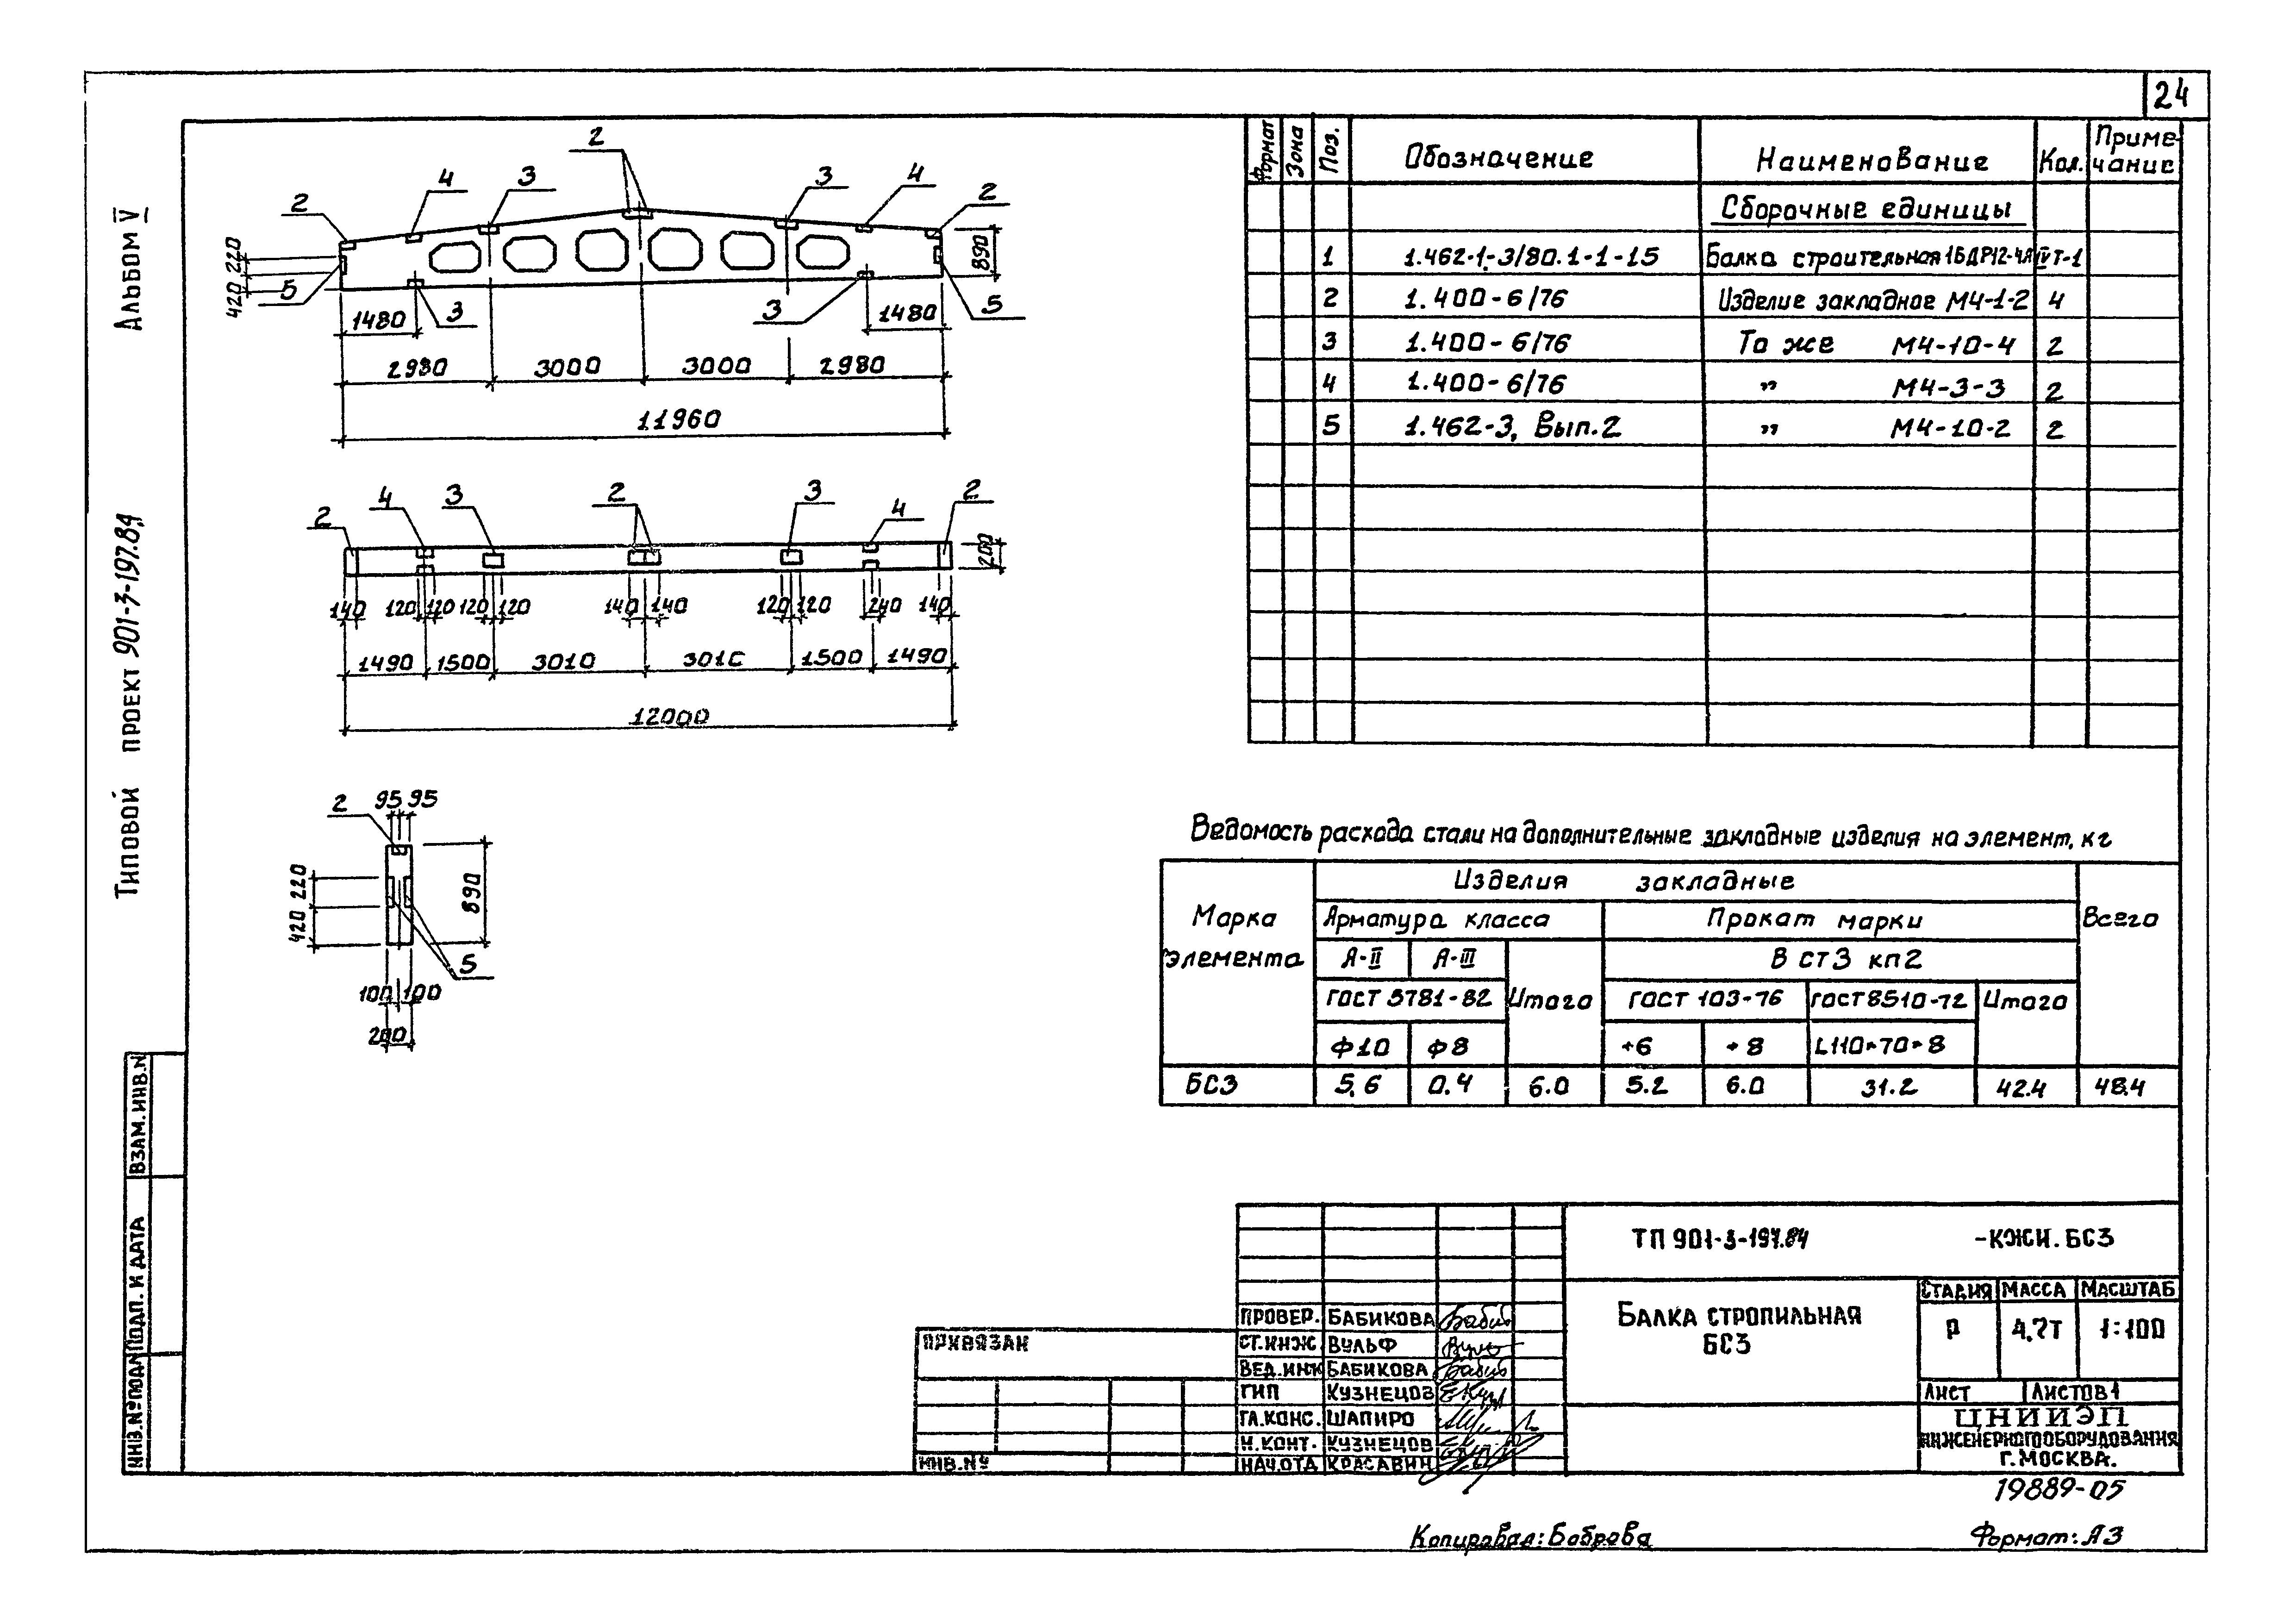 24
Альбом V
Типовой проект 901-3-197.84
2
4
3
2
3
4
2
220
420
5
890
5
1480
3
3
1480
2980
3000
3000
2980
11960
2
4
3
2
3
4
2
200
140
120
120
120
120
140
140
120
120
240
140
1490
1500
3010
3010
1500
1490
12000
2
95
95
220
420
890
5
100
100
200
Формат
Зона
Поз.
Обозначение
Наименование
Кол.
Приме-
чание
Сборочные единицы
1 1.462-1-3/80.1-1-15 Балка строительная 1БДР12-4АIVТ-1
2 1.400-6/76 Изделие закладное М4-1-2 4
3 1.400-6/76 То же М4-10-4 2
4 1.400-6/76 " М4-3-3 2
5 1.462-3, Вып.2 " М4-10-2 2
Ведомость расхода стали на дополнительные закладные изделия на элемент, кг
Марка
элемента
Изделия закладные
Всего
Арматура класса
Прокат марки
А-II
А-III
В ст3 кп2
ГОСТ 5781-82
Итого
ГОСТ 103-76
ГОСТ 8510-72
Итого
Ф10
Ф8
-6
-8
L110×70×8
БС3 5.6 0.4 6.0 5.2 6.0 31.2 42.4 48.4
ВЗАМ.ИНВ.N
ПОДП. И ДАТА
ИНВ.№ПОДЛ
ПРИВЯЗАН
ИНВ.№
ПРОВЕР. БАБИКОВА
СТ.ИНЖ. ВУЛЬФ
ВЕД.ИНЖ БАБИКОВА
ГИП КУЗНЕЦОВ
ГЛ.КОНС. ШАПИРО
Н.КОНТ. КУЗНЕЦОВ
НАЧ.ОТД КРАСАВИН
ТП 901-3-197.84 -КЖИ.БС3
БАЛКА СТРОПИЛЬНАЯ
БС3
СТАДИЯ МАССА МАСШТАБ
Р 4,7Т 1:100
ЛИСТ ЛИСТОВ 1
ЦНИИЭП
ИНЖЕНЕРНОГО ОБОРУДОВАНИЯ
Г.МОСКВА.
19889-05
Копировал: Боброва
Формат: А3